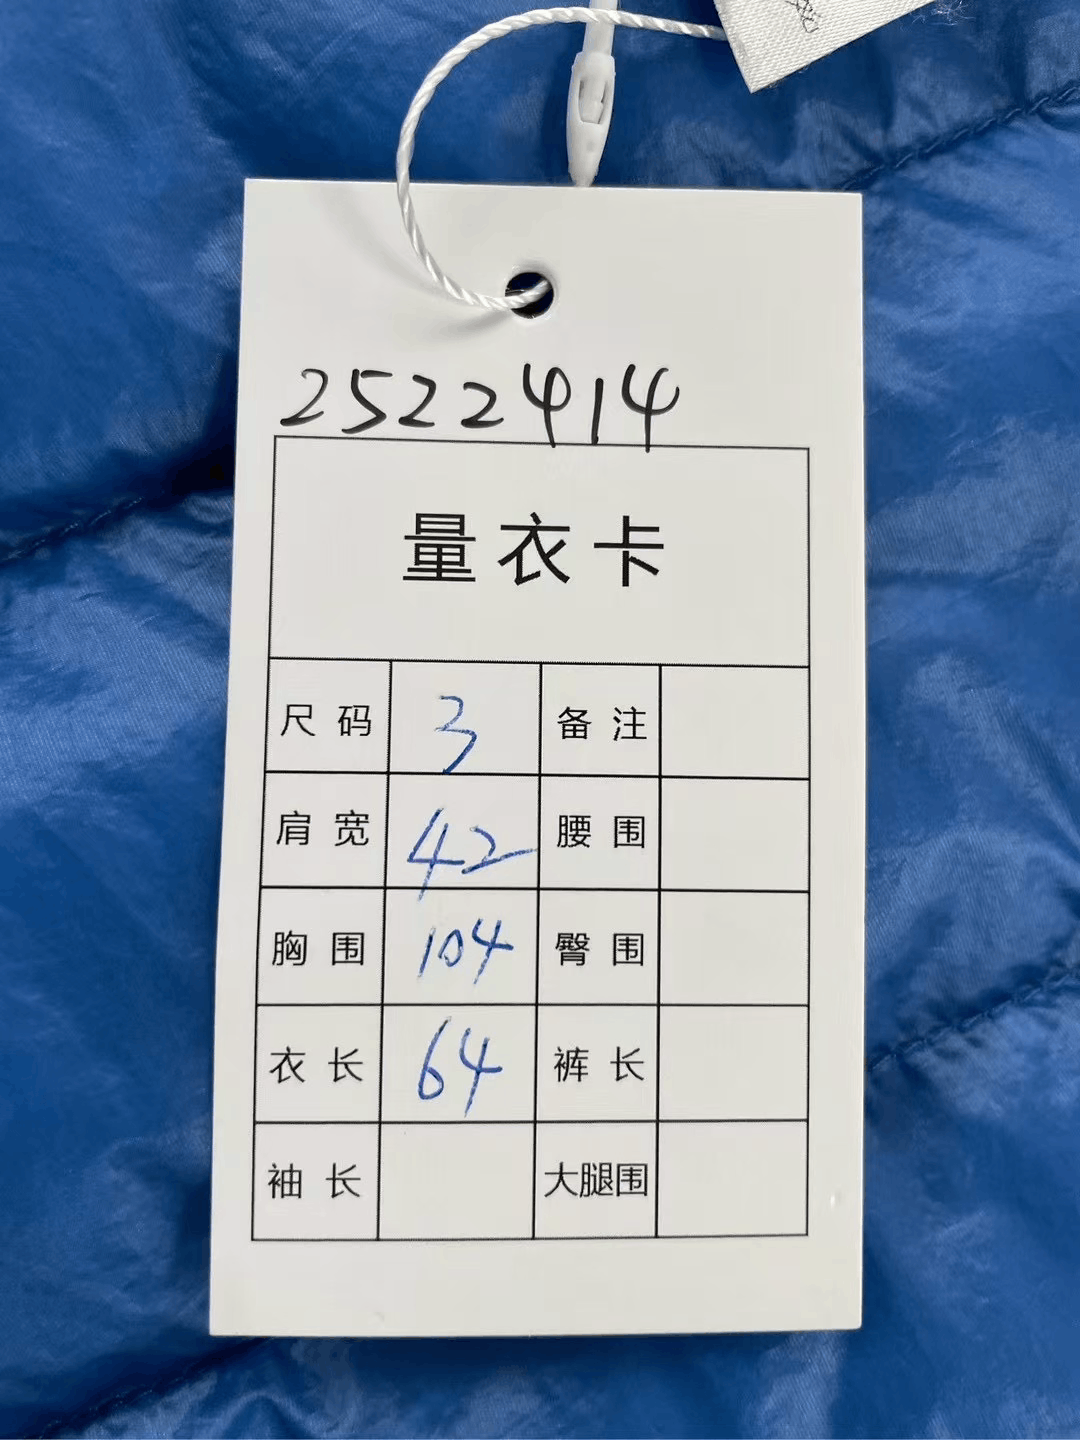 2522414
量衣卡
尺码 3 备注
肩宽 42 腰围
胸围 104 臀围
衣长 64 裤长
袖长 大腿围